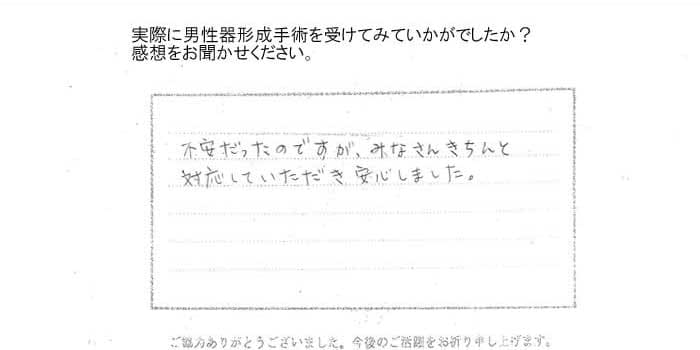 実際に男性器形成手術を受けてみていかがでしたか？
感想をお聞かせください。
不安だったのですが、みなさんきちんと
対応していただき安心しました。
ご協力ありがとうございました。今後のご活躍をお祈り申し上げます。